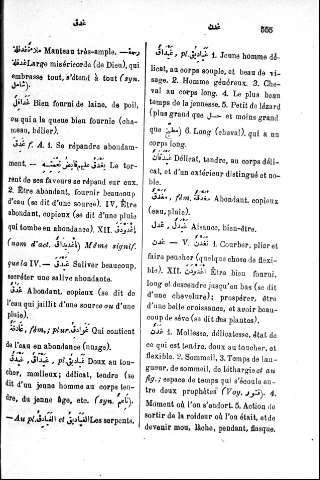 غدق
غدن
555
ملاءة غدفة Manteau très-ample. رحمة —
غدفة Large miséricorde (de Dieu), qui
embrasse tout, s'étend à tout (syn.
شامل).
Bien fourni de laine, de poil,
ou qui a la queue bien fournie (cha-
meau, bélier).
غدق f. A. 1. Se répandre abondam-
ment, — Le tor-
rent de ses faveurs se répand sur eux.
2. Être abondant, fournir beaucoup
d'eau (se dit d'une source). IV. Être
abondant, copieux (se dit d'une pluie
qui tombe en abondance). XII. اغدودق
(nom d'act. اغديداق) Même signif.
que la IV. — غيدق Saliver beaucoup,
secréter une salive abondante.
غدق Abondant, copieux (se dit de
l'eau qui jaillit d'une source ou d'une
pluie).
fém.; plur. غوادق Qui contient
de l'eau en abondance (nuage).
غيدق, غيداق pl. غياديق Doux au tou-
cher, moelleux; délicat, tendre (se
dit d'un jeune homme au corps ten-
dre, du jeune âge, etc. (syn. ناعم).
— Au pl. الغيادق et الغياديق Les serpents.
غيداق, pl. غياديق 1. Jeune homme dé-
licat, au corps souple, et beau de vi-
sage. 2. Homme généreux. 3. Che-
val au corps long. 4. Le plus beau
temps de la jeunesse. 5. Petit du lézard
(plus grand que حسل et moins grand
que مطبخ) 6. Long (cheval), qui a un
corps long.
غيدقان Délicat, tendre, au corps déli-
cat, et d'un extérieur distingué et no-
ble.
مغدق, fém. مغدقة Abondant, copieux
(eau, pluie).
غدل, غيدل Aisance, bien-être.
غدن — V. تغدن 1. Courber, plier et
faire pencher (quelque chose de flexi-
ble). XII. اغدودن Être bien fourni,
long et descendre jusqu'en bas (se dit
d'une chevelure); prospérer, être
d'une belle croissance, et avoir beau-
coup de sève (se dit des plantes).
غدن 1. Mollesse, délicatesse, état de
ce qui est tendre, doux au toucher, et
flexible. 2. Sommeil. 3. Temps de lan-
gueur, de sommeil, de léthargie et au
fig.; espace de temps qui s'écoule en-
tre deux prophètes (Voy. فتور). 4.
Moment où l'on s'endort. 5. Action de
sortir de la roideur où l'on était, et de
devenir mou, lâche, pendant, flasque.